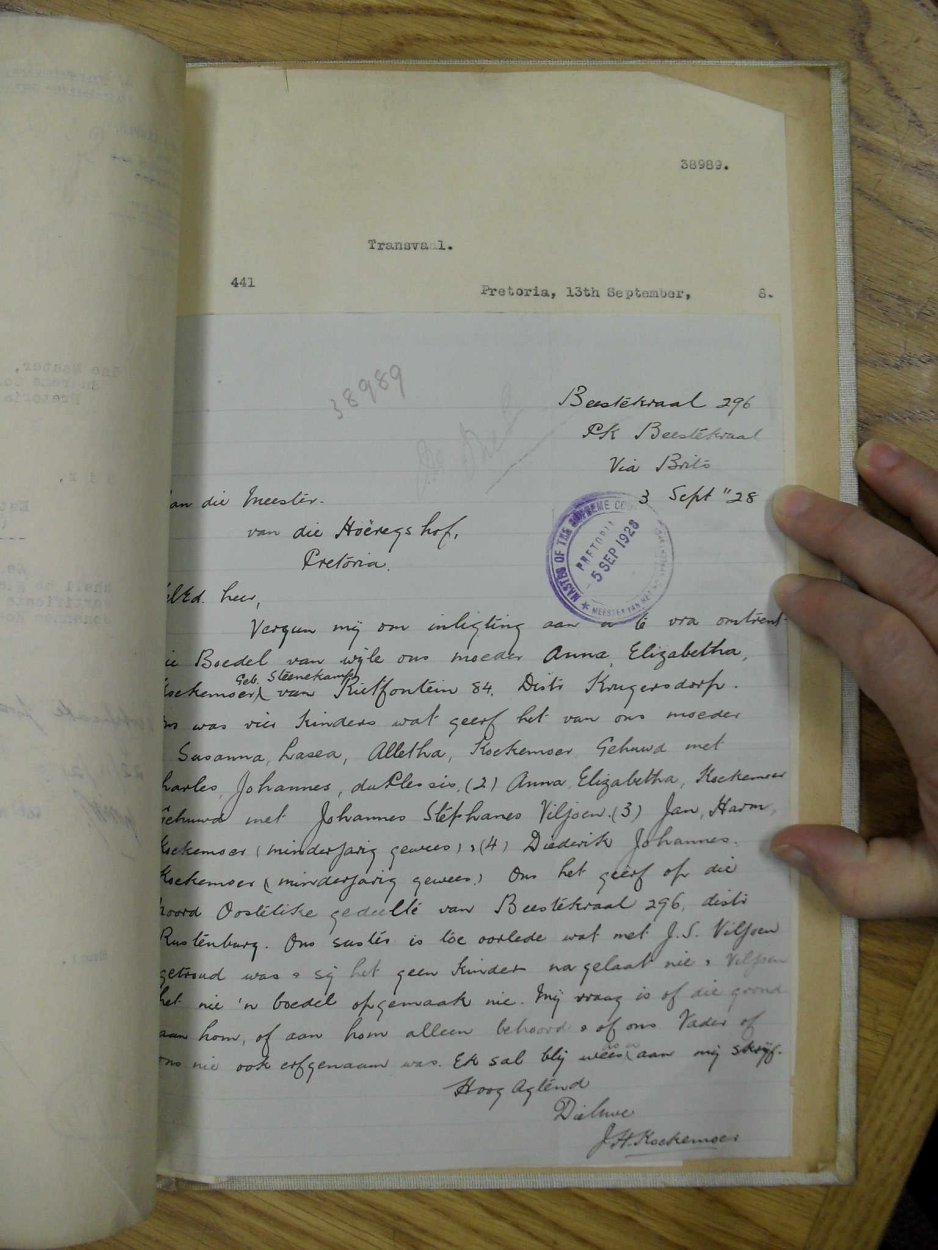 38989.
Transvaal.
441
Pretoria, 13th September,
8.
38989
Beestekraal 296
PK Beestekraal
Via Brits
3 Sept "28
an die Meester.
van die Hoëregshof,
Pretoria.
MASTER OF THE SUPREME COU
PRETORIA
5 SEP 1928
MEESTER VAN HET
Ed. heer,
Vergun mij om inligting aan u te vra omtrent
ie Boedel van wijle ons moeder Anna, Elizabetha,
Geb. Steenekamp
Koekemoer, van Rietfontein 84. Distr Krugersdorp.
ns was vier kinders wat geerf het van ons moeder
Susanna, Lasea, Alletha, Koekemoer, Gehuwd met
harles, Johannes, duPlessis, (2) Anna Elizabetha, Koekemoer
Gehuwd met Johannes Stephanes Viljoen. (3) Jan, Harm,
Koekemoer (minderjarig gewees), (4) Diederik Johannes.
Koekemoer (minderjarig gewees) Ons het geerf op die
noord Oostelike gedeelte van Beestekraal 296, distr
Rustenburg. Ons suster is toe oorlede wat met J.S. Viljoen
getroud was, sij het geen kinders nagelaat nie, Viljoen
het nie 'n boedel opgemaak nie. Mij vraag is of die grond
aan hom, of aan hom alleen behoord, of ons Vader of
ons nie ook erfgenaam was. Ek sal blij wees as u aan mij skrijf.
Hoog Agtend
Die Uwe
J.H. Koekemoer